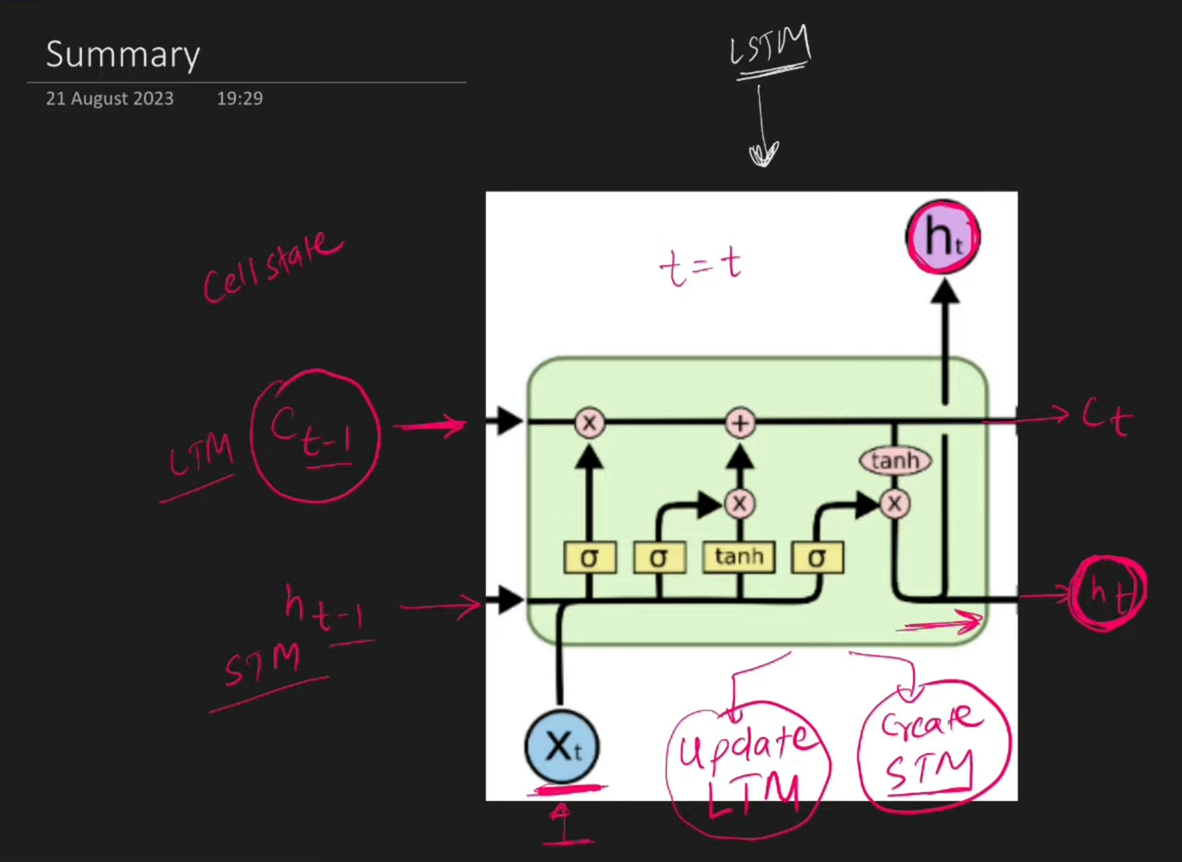 Summary
21 August 2023 19:29
LSTM
Cell state
t = t
ht
LTM
Ct-1
Ct
x
+
tanh
x
x
σ
σ
tanh
σ
ht-1
ht
STM
Xt
Update
LTM
Create
STM
1